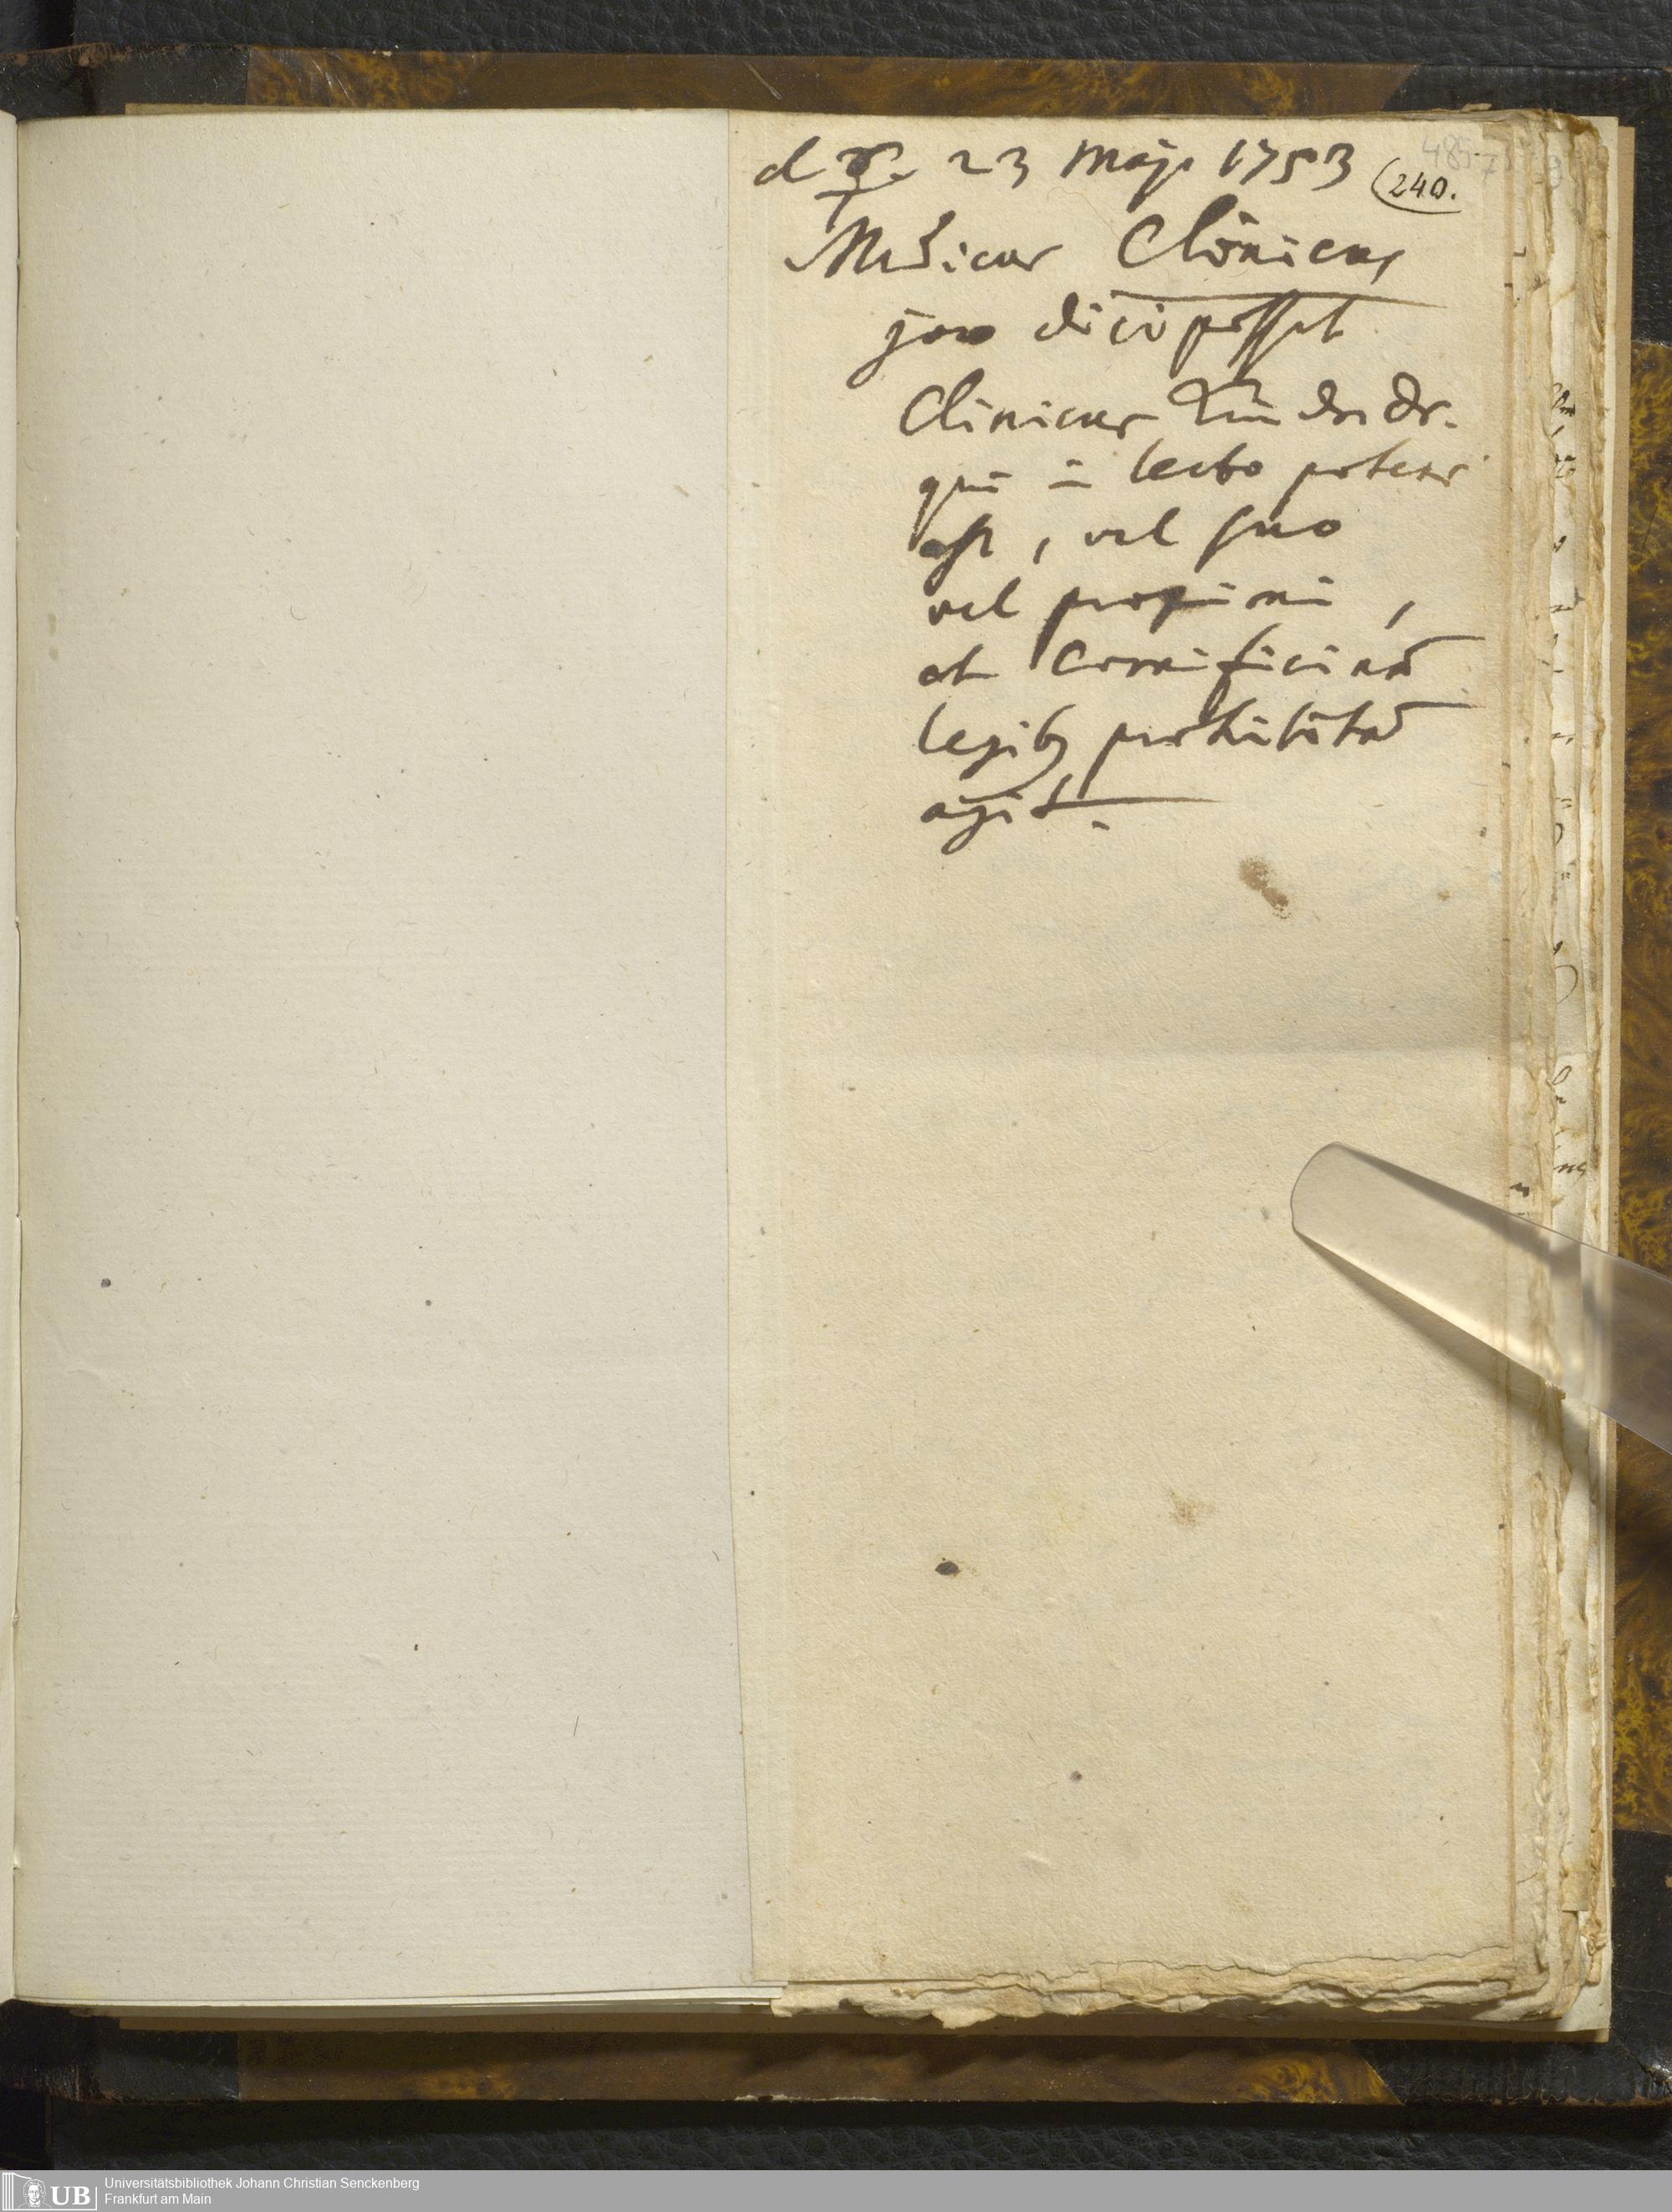 d ☿. 23 Maji 1753
240.
Medicus Clinicus
joco dici posset
Clinicus
qui in lecto potens
est, vel suo
vel proximi,
et carnificinā
legibꝫ prohibitā
agit.
UB
Universitätsbibliothek Johann Christian Senckenberg
Frankfurt am Main